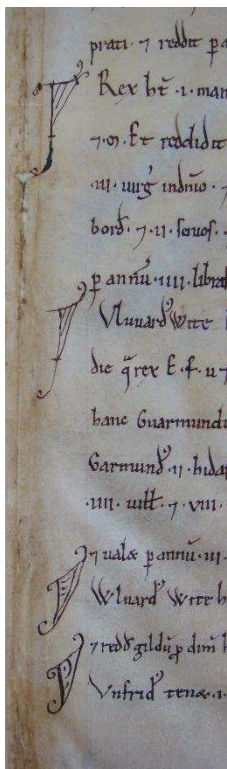 prati. ⁊ reddit p a
Rex ht̄ .i. man
⁊ o. Et reddidit
.iii. uirg in dn̄io. ⁊
bord̄. ⁊ .ii. seruos.
p annū .iiii. libra
Vluuard Wite
die q̄ rex E. f. u ⁊
hanc Guarmund
Garmund .ii. hidas
.iiii. uill̄. ⁊ viii.
⁊ ualet p annū .iii.
Wluard Wite h
⁊ redd gildū p dim h
Vnfrid tenet .i.